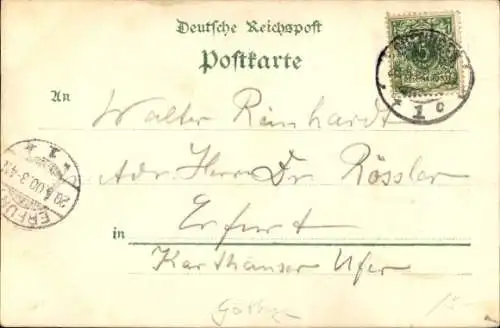 Deutsche Reichspost
Postkarte
An Walter Reinhardt
Adr Herrn Dr Rössler
in Erfurt
Karthäuser Ufer
5
1 c
ERFUR